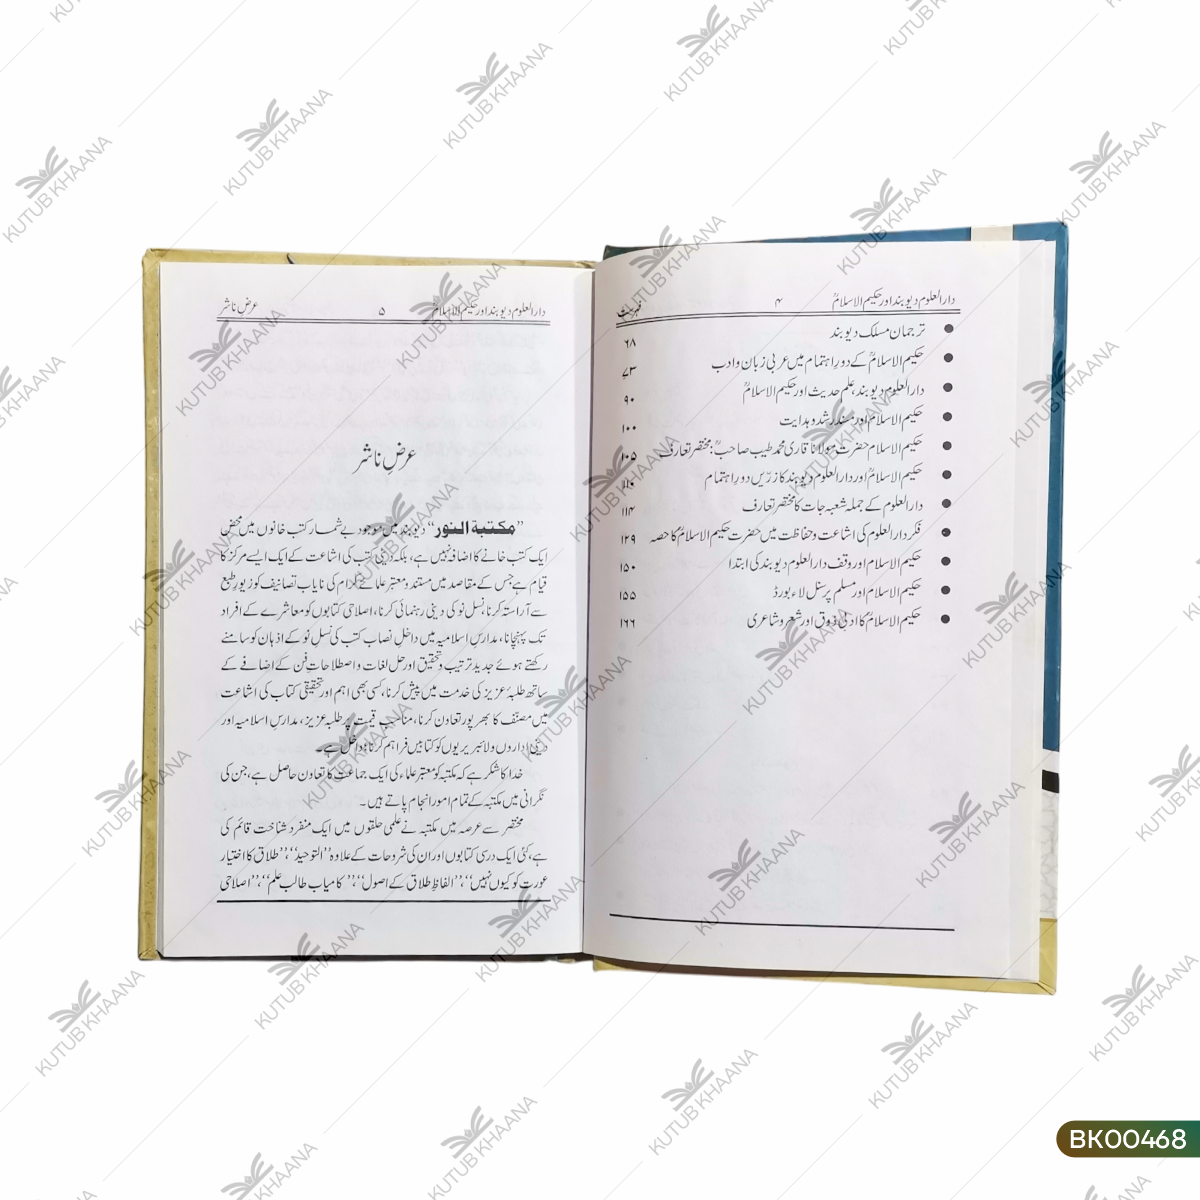 دارالعلوم دیوبند اور حکیم الاسلامؒ ۴ فہرست
● ترجمان مسلک دیوبند ۶۸
● حکیم الاسلامؒ کے دورِ اہتمام میں عربی زبان وادب ۷۳
● دارالعلوم دیوبند، علم حدیث اور حکیم الاسلامؒ ۹۰
● حکیم الاسلامؒ اور مسند رشد و ہدایت ۱۰۰
● حکیم الاسلام حضرت مولانا قاری محمد طیب صاحبؒ: مختصر تعارف ۱۰۵
● حکیم الاسلامؒ اور دارالعلوم دیوبند کا زرّیں دورِ اہتمام ۱۱۰
● دارالعلوم کے جملہ شعبہ جات کا مختصر تعارف ۱۱۴
● فکر دارالعلوم کی اشاعت وحفاظت میں حضرت حکیم الاسلامؒ کا حصہ ۱۲۹
● حکیم الاسلام اور وقف دارالعلوم دیوبند کی ابتدا ۱۵۰
● حکیم الاسلام اور مسلم پرسنل لاء بورڈ ۱۵۵
● حکیم الاسلامؒ کا ادبی ذوق اور شعر وشاعری ۱۶۶
دارالعلوم دیوبند اور حکیم الاسلامؒ ۵ عرضِ ناشر
عرضِ ناشر
”مکتبة النور“ دیوبند میں موجود بے شمار کتب خانوں میں محض
ایک کتب خانے کا اضافہ نہیں ہے، بلکہ دینی کتب کی اشاعت کے ایک ایسے مرکز کا
قیام ہے جس کے مقاصد میں مستند و معتبر علمائے کرام کی نایاب تصانیف کو زیورِ طبع
سے آراستہ کرنا، نسل نو کی دینی رہنمائی کرنا، اصلاحی کتابوں کو معاشرے کے افراد
تک پہنچانا، مدارسِ اسلامیہ میں داخل نصاب کتب کی نسلِ نو کے اذہان کو سامنے
رکھتے ہوئے جدید ترتیب وتحقیق اور حل لغات و اصطلاحات فن کے اضافے کے
ساتھ طلبۂ عزیز کی خدمت میں پیش کرنا، کسی بھی اہم اور تحقیقی کتاب کی اشاعت
میں مصنف کا بھرپور تعاون کرنا، مناسب قیمت پر طلبہ عزیز، مدارسِ اسلامیہ اور
دینی اداروں ولائبریریوں کو کتابیں فراہم کرنا؛ داخل ہے۔
خدا کا شکر ہے کہ مکتبہ کو معتبر علماء کی ایک جماعت کا تعاون حاصل ہے، جن کی
نگرانی میں مکتبہ کے تمام امور انجام پاتے ہیں۔
مختصر سے عرصہ میں مکتبہ نے علمی حلقوں میں ایک منفرد شناخت قائم کی
ہے، کئی ایک درسی کتابوں اور ان کی شروحات کے علاوہ ”التوحید“، ”طلاق کا اختیار
عورت کو کیوں نہیں“، ”الفاظِ طلاق کے اصول“، ”کامیاب طالب علم“، ”اصلاحی
KUTUB KHAANA
BK00468